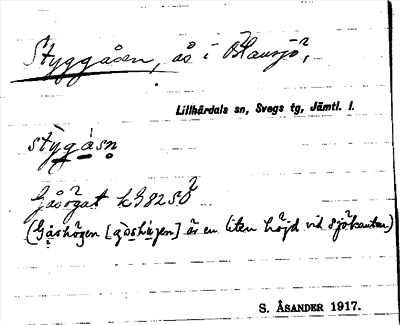 Styggåsen, ås i
Lillhärdals sn, Svegs tg, Jämtl. l.
stygåsn
(Gåshögen [ ] är en liten höjd vid sjökanten.)
S. ÅSANDER 1917.